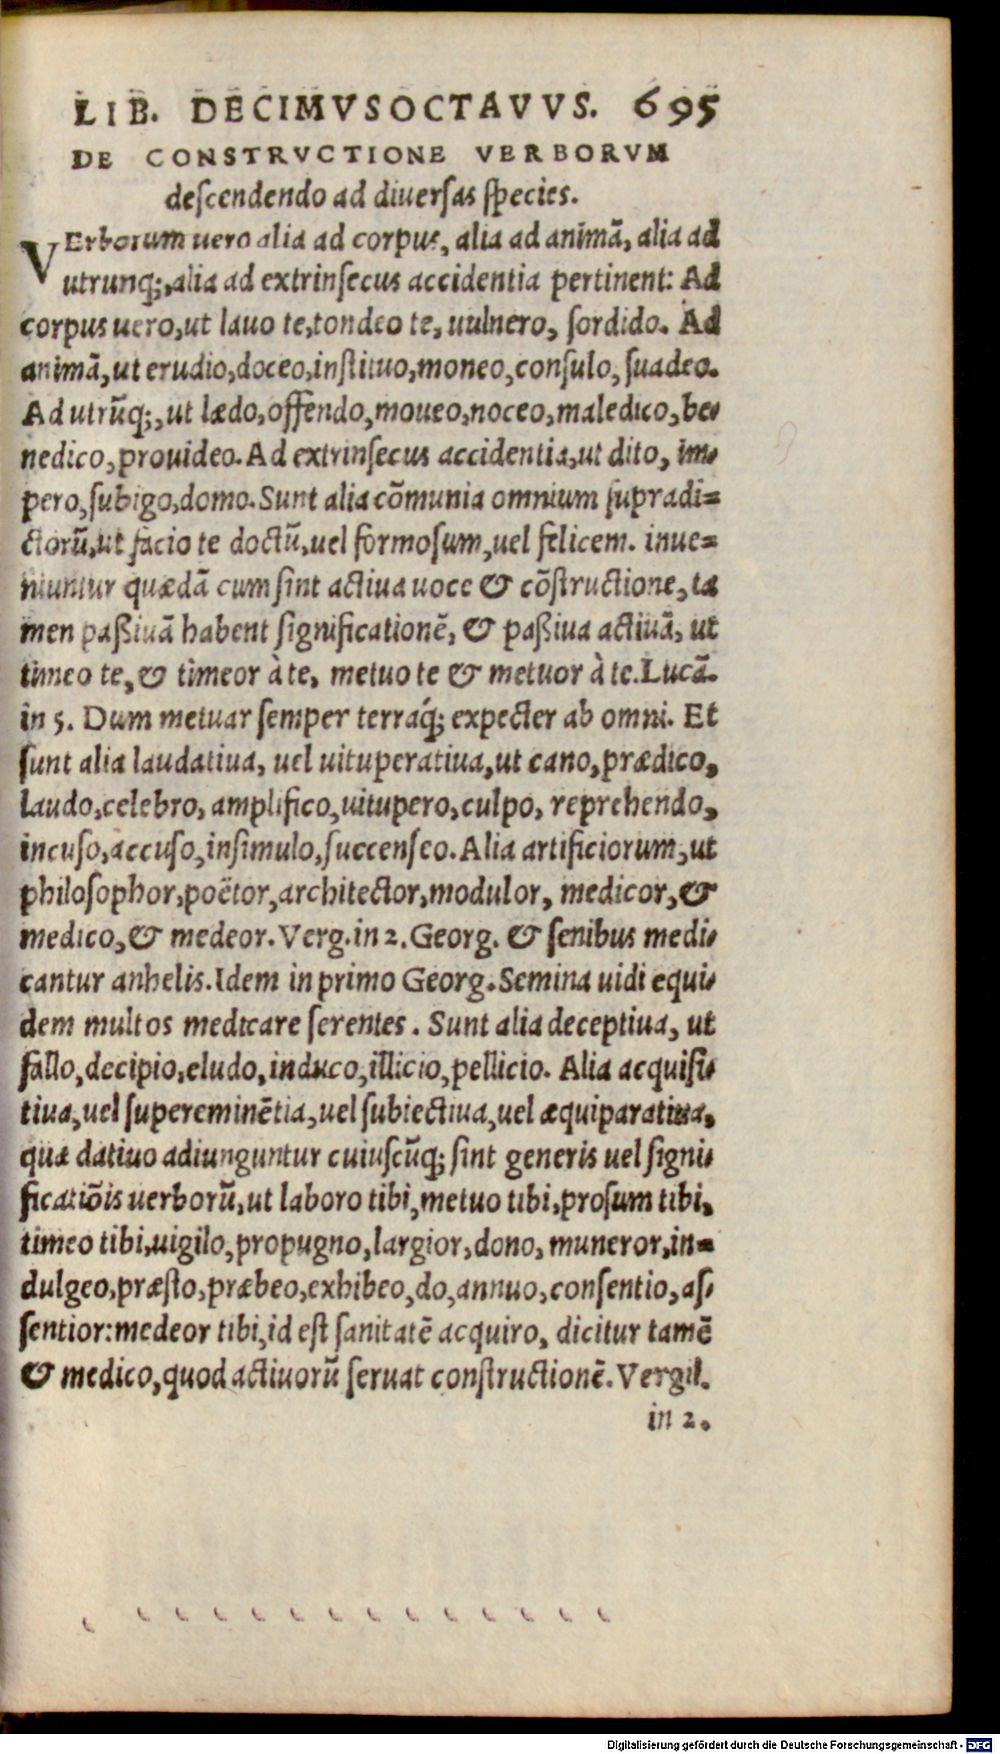 LIB. DECIMVSOCTAVVS. 695
DE CONSTRVCTIONE VERBORVM
deſcendendo ad diuerſas ſpecies.
VErborum uero alia ad corpus, alia ad animã, alia ad
utrunq;, alia ad extrinſecus accidentia pertinent: Ad
corpus uero, ut lauo te, tondeo te, uulnero, ſordido. Ad
animã, ut erudio, doceo, inſtituo, moneo, conſulo, ſuadeo.
Ad utrũq;, ut lædo, offendo, moueo, noceo, maledico, be-
nedico, prouideo. Ad extrinſecus accidentia, ut dito, im-
pero, ſubigo, domo. Sunt alia cõmunia omnium ſupradi=
ctorũ, ut facio te doctũ, uel formoſum, uel felicem. inue=
niuntur quædã cum ſint actiua uoce & cõſtructione, ta
men paßiuã habent ſignificationẽ, & paßiua actiuã, ut
timeo te, & timeor à te, metuo te & metuor à te. Lucã.
in 5. Dum metuar ſemper terraq́; expecter ab omni. Et
ſunt alia laudatiua, uel uituperatiua, ut cano, prædico,
laudo, celebro, amplifico, uitupero, culpo, reprehendo,
incuſo, accuſo, inſimulo, ſuccenſeo. Alia artificiorum, ut
philoſophor, poëtor, architector, modulor, medicor, &
medico, & medeor. Verg. in 2. Georg. & ſenibus medi-
cantur anhelis. Idem in primo Georg. Semina uidi equi-
dem multos medicare ſerentes. Sunt alia deceptiua, ut
fallo, decipio, eludo, induco, illicio, pellicio. Alia acquiſi-
tiua, uel ſupereminẽtia, uel ſubiectiua, uel æquiparatiua,
quæ datiuo adiunguntur cuiuſcũq; ſint generis uel ſigni-
ficatiõis uerborũ, ut laboro tibi, metuo tibi, proſum tibi,
timeo tibi, uigilo, propugno, largior, dono, muneror, in=
dulgeo, præſto, præbeo, exhibeo, do, annuo, conſentio, aſ-
ſentior: medeor tibi, id eſt ſanitatẽ acquiro, dicitur tamẽ
& medico, quod actiuorũ ſeruat conſtructionẽ. Vergil.
in 2.
Digitalisierung gefördert durch die Deutsche Forschungsgemeinschaft - DFG